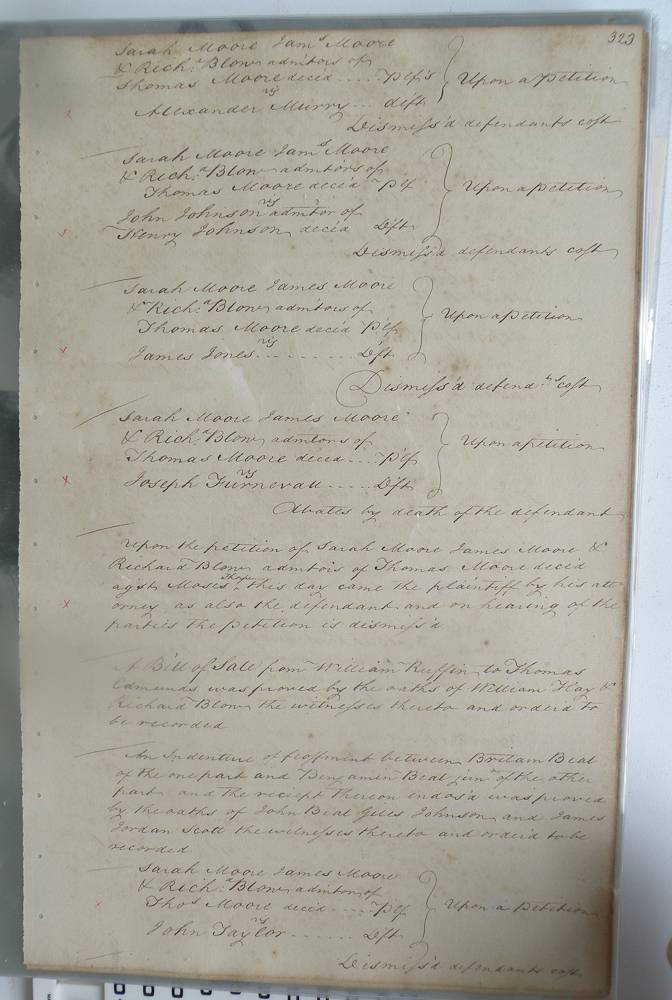 323
Sarah Moore Jams Moore
& Richd Blow admtors of
Thomas Moore decid .... Plfs } Upon a Petition
vs
Alexander Murry ... deft
Dismiss'd defendants cost
Sarah Moore Jams Moore
& Richd Blow admtors of
Thomas Moore decid Plf } Upon a Petition
vs
John Johnson admtor of
Henry Johnson decid Dft
Dismiss'd defendants cost
Sarah Moore James Moore
& Richd Blow admtors of
Thomas Moore decid Plf } Upon a Petition
vs
James Jones .......... Dft
Dismiss'd defendts cost
Sarah Moore James Moore
& Richd Blow admtors of
Thomas Moore decid .... Plf } Upon a Petition
vs
Joseph Furnevall ..... Dft
Abates by death of the defendant
Upon the petition of Sarah Moore James Moore &
Richard Blow admtors of Thomas Moore decid
agst Moses this day came the plaintiff by his att
orney as also the defendant and on hearing of the
parties the Petition is dismiss'd
A Bill of Sale from William Ruffin to Thomas
Edmunds was proved by the oaths of William Hay &
Richard Blow the witnesses thereto and orderd to
be recorded
An Indenture of feoffment between Britain Beal
of the one part and Benjamin Beal junr of the other
part and the reciept thereon endors'd was proved
by the oaths of John Beal Giles Johnson and James
Jordan Scott the witnesses thereto and orderd to be
recorded
Sarah Moore James Moore
& Richd Blow admtors of
Thos Moore decid .... Plf } Upon a Petition
vs
John Taylor ........ Dft
Dismiss'd defendants cost